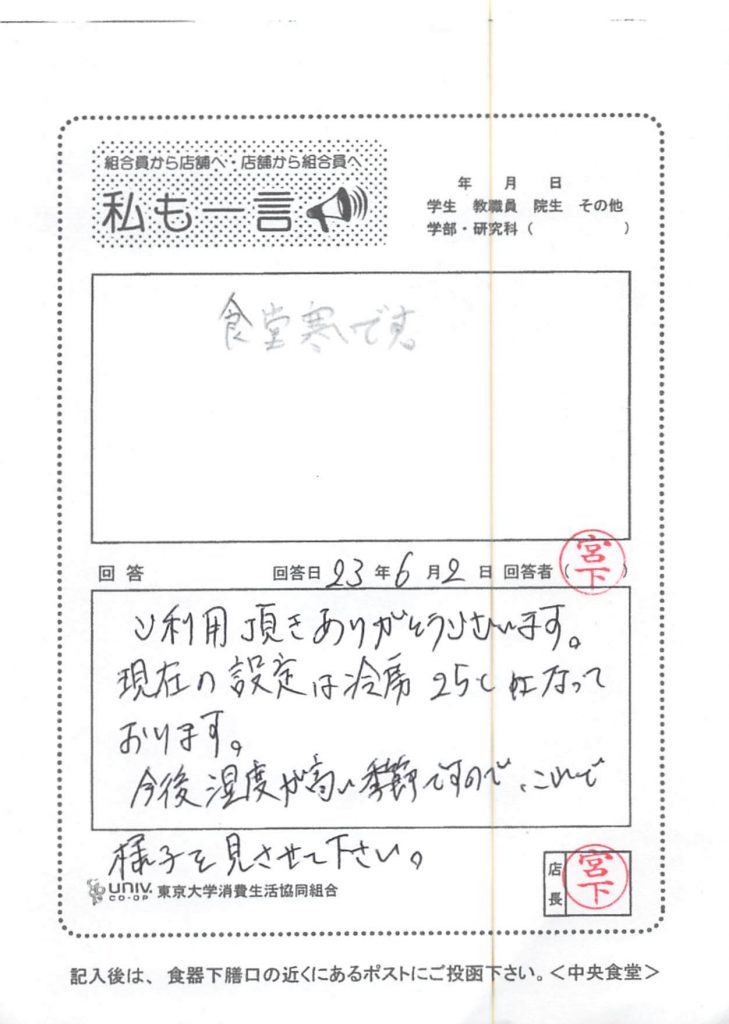 組合員から店舗へ・店舗から組合員へ
私も一言
年 月 日
学生 教職員 院生 その他
学部・研究科 ( )
食堂寒いです。
回答 回答日 23 年 6 月 2 日 回答者 (宮下)
ご利用頂きありがとうございます。
現在の設定は冷房25℃になって
おります。
今後湿度が高い季節ですので、これで
様子を見させて下さい。
店長 宮下
UNIV. CO-OP 東京大学消費生活協同組合
記入後は、食器下膳口の近くにあるポストにご投函下さい。<中央食堂>